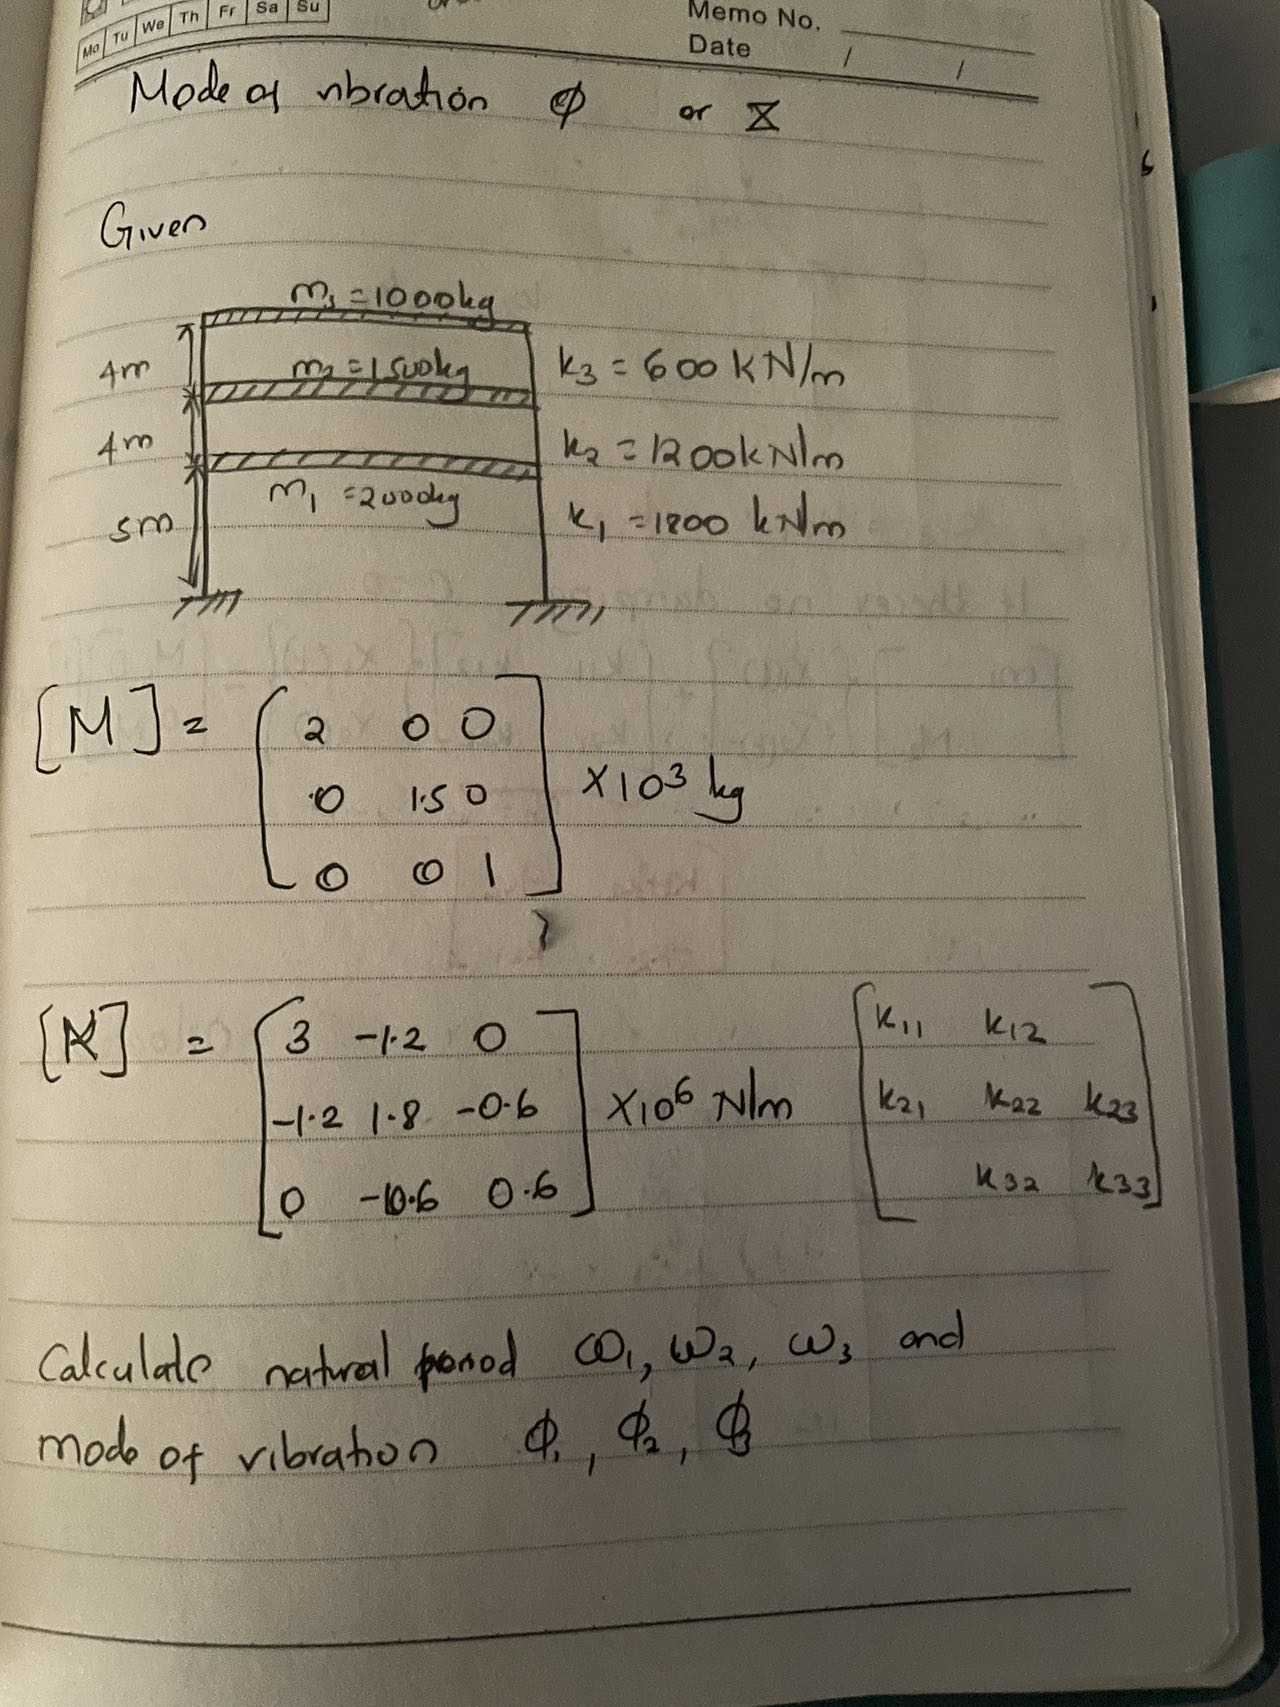 Mo Tu We Th Fr Sa Su
Memo No.
Date / /
Mode of vibration ϕ or X
Given
m₃ = 1000kg
4m m₂ = 1500kg k₃ = 600 KN/m
4m k₂ = 1200kN/m
5m m₁ = 2000kg k₁ = 1800 kN/m
[M] = [2 0 0
0 1.5 0
0 0 1] ×10³ kg
[K] = [3 -1.2 0
-1.2 1.8 -0.6
0 -0.6 0.6] ×10⁶ N/m
[k₁₁ k₁₂
k₂₁ k₂₂ k₂₃
k₃₂ k₃₃]
Calculate natural period ω₁, ω₂, ω₃ and
mode of vibration ϕ₁, ϕ₂, ϕ₃